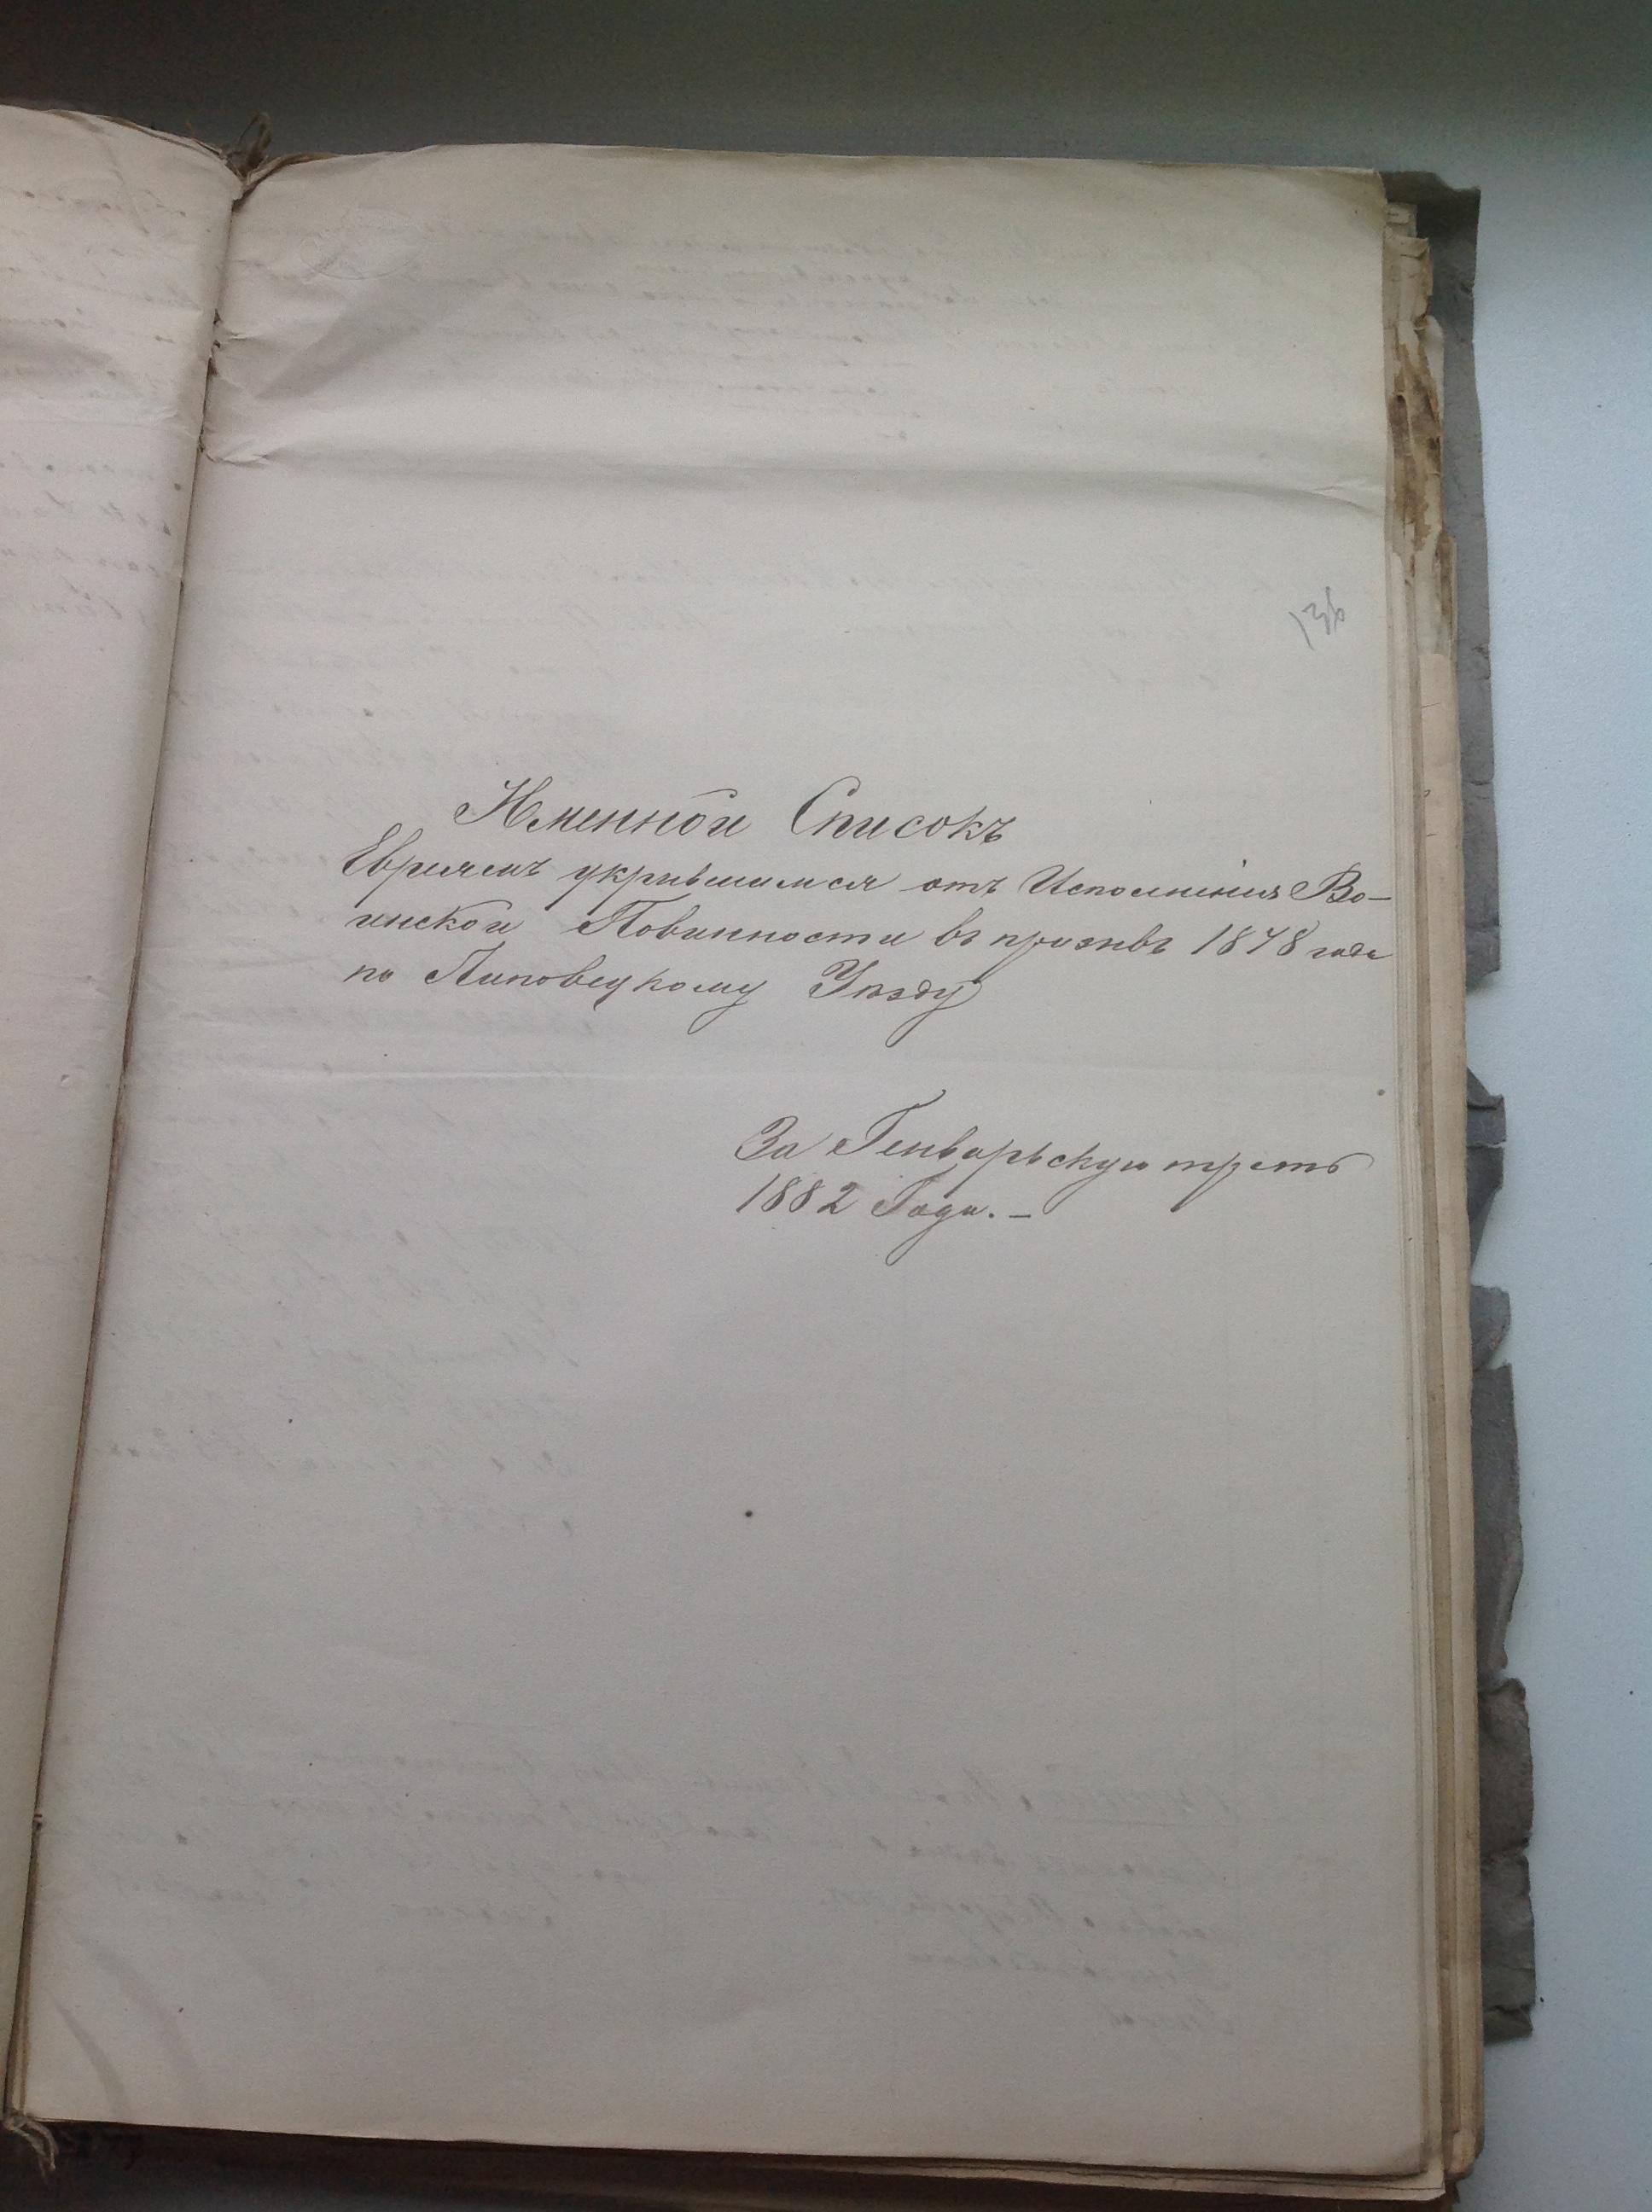 136
Именной Списокъ
Евреямъ укрывшимся отъ Исполненія Во-
инской Повинности въ призывъ 1878 года
по Липовецкому Уѣзду
За Генварьскую треть
1882 Года. —